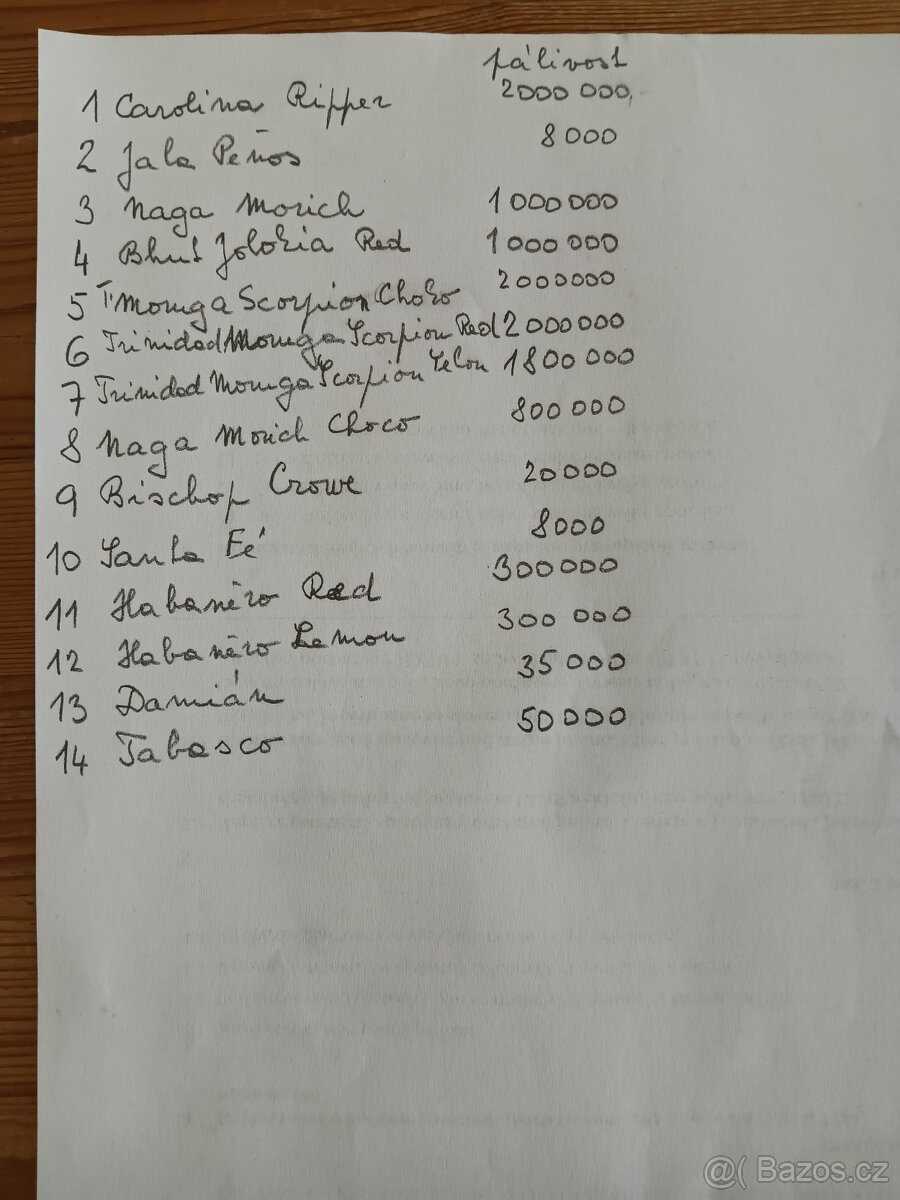 pálivost
1 Carolina Ripper 2000 000,-
2 Jala Peňos 8000
3 Naga Morich 1000000
4 Bhut Jolokia Red 1000000
5 T Moruga Scorpion Choko 2000000
6 Trinidad Moruga Scorpion Red 2000000
7 Trinidad Moruga Scorpion Yelon 1800 000
8 Naga Morich Choco 800 000
9 Bischop Crowe 20000
10 Santa Fé 8000
11 Habanéro Red 300000
12 Habanéro Lemon 300 000
13 Damián 35 000
14 Tabasco 50000
@( Bazos.cz